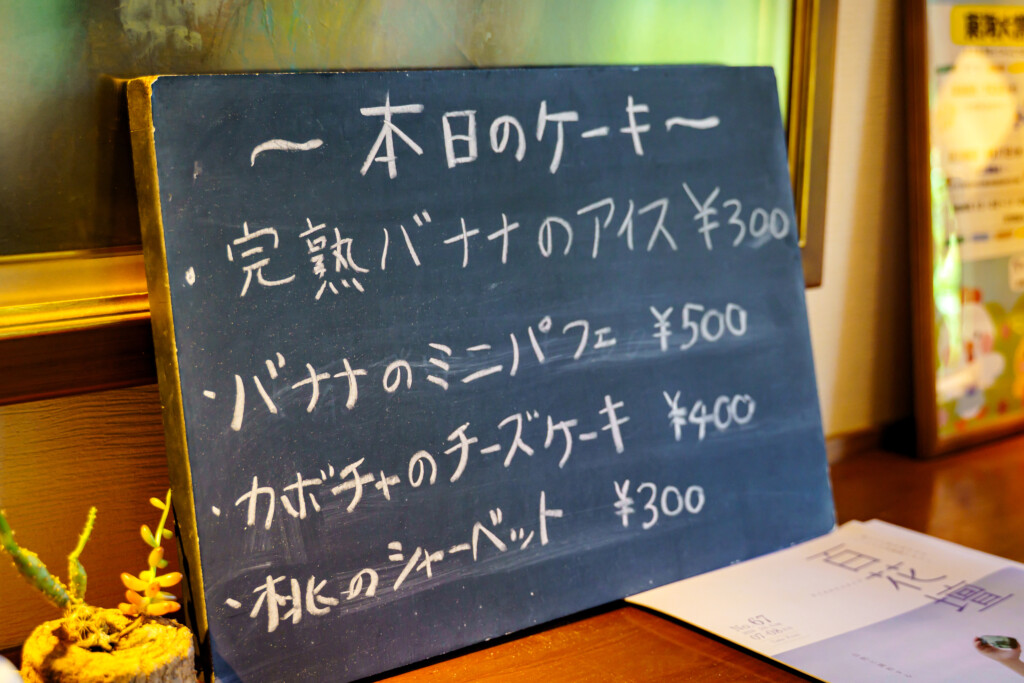 ～本日のケーキ～
・完熟バナナのアイス ¥300
・バナナのミニパフェ ¥500
・カボチャのチーズケーキ ¥400
・桃のシャーベット ¥300
百花壇
No.67
07-08